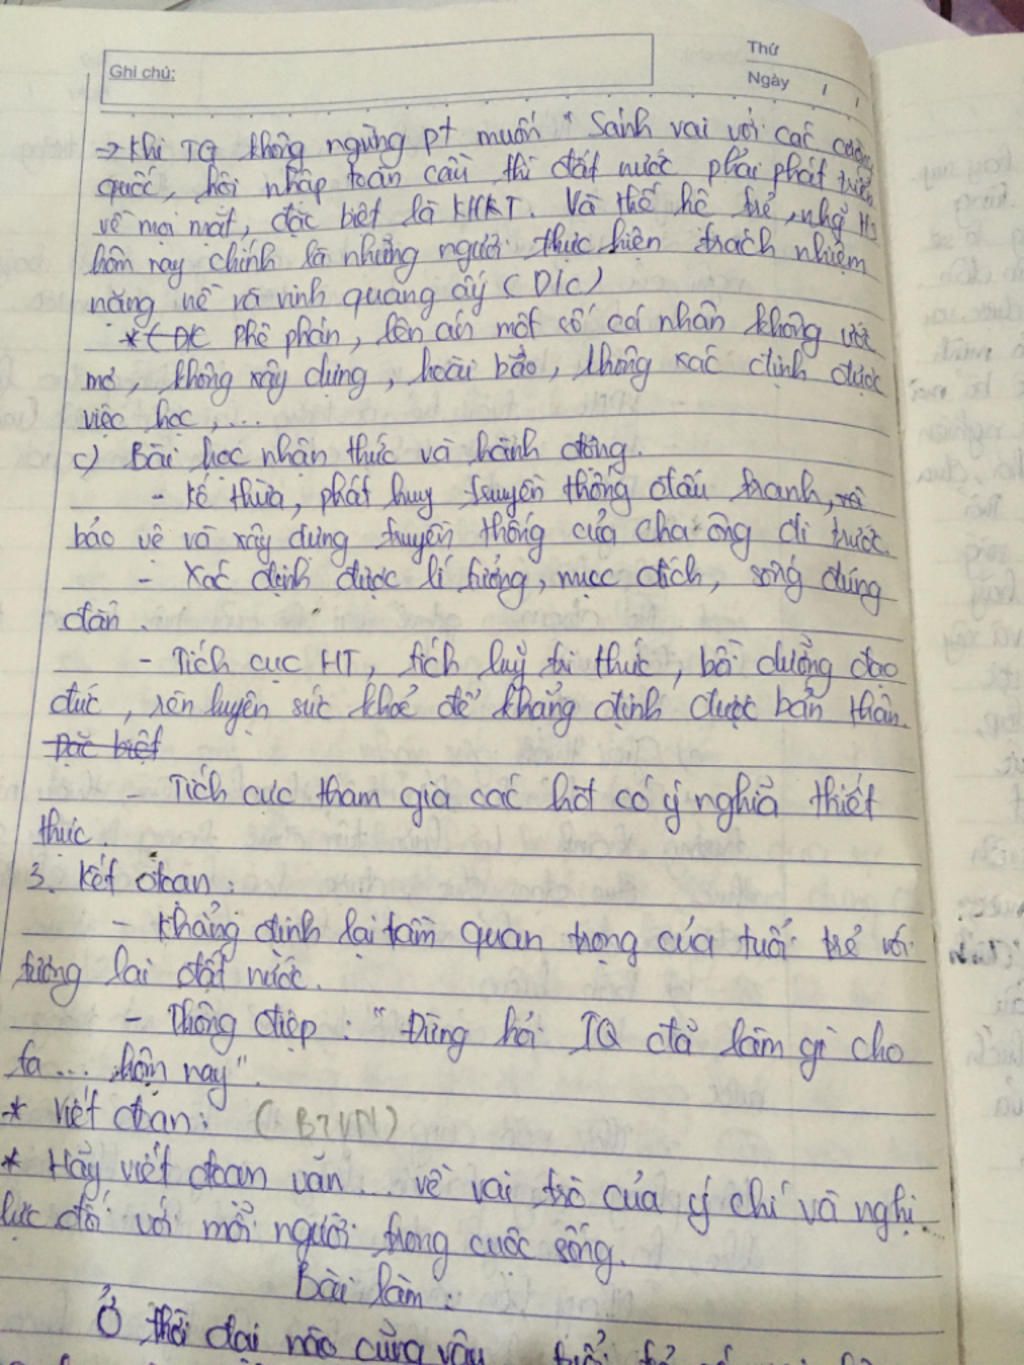 Ghi chú:
Thứ
Ngày / /
→ Khi TQ không ngừng pt muốn " Sánh vai với các cường
quốc, hội nhập toàn cầu thì đất nước phải phát triển
về mọi mặt, đặc biệt là KHKT. Và thế hệ trẻ, như HS
hôm nay chính là những người thực hiện trách nhiệm
nặng nề và vinh quang ấy (D/c)
* (ĐK Phê phán, lên án một số cá nhân không ước
mơ, không xây dựng, hoài bão, không xác định được
việc học,...
c) Bài học nhận thức và hành động.
- Kế thừa, phát huy truyền thống đấu tranh,
bảo vệ và xây dựng truyền thống của cha ông đi trước.
- Xác định được lí tưởng, mục đích, sống đúng
đắn.
- Tích cực HT, tích luỹ tri thức, bồi dưỡng đạo
đức, rèn luyện sức khoẻ để khẳng định được bản thân.
Đặc biệt
- Tích cực tham gia các hđt có ý nghĩa thiết
thực.
3. Kết đoạn:
- Khẳng định lại tầm quan trọng của tuổi trẻ với
tương lai đất nước.
- Thông điệp: "Đừng hỏi TQ đã làm gì cho
ta... hôm nay".
* Viết đoạn: (BTVN)
* Hãy viết đoạn văn... về vai trò của ý chí và nghị
lực đối với mỗi người trong cuộc sống.
Bài làm:
Ở thời đại nào cũng vậy